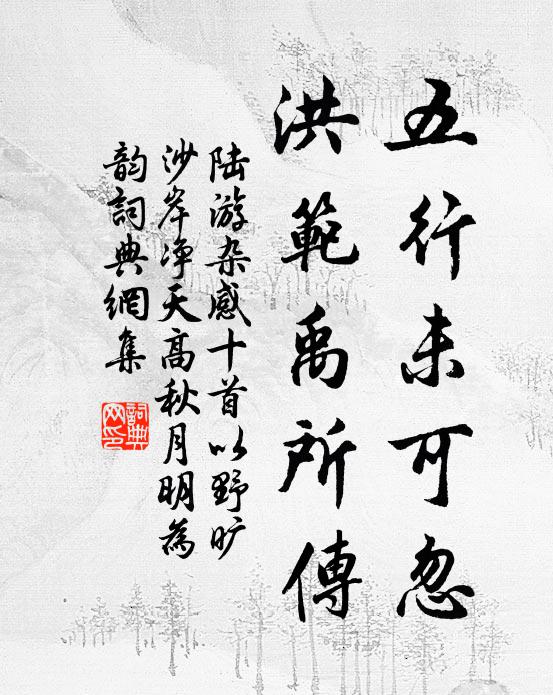 五行未可忽
洪範禹所傳
陆游杂感十首以野旷
沙岸净天高秋月明為
韵詞典網集
詞典网印